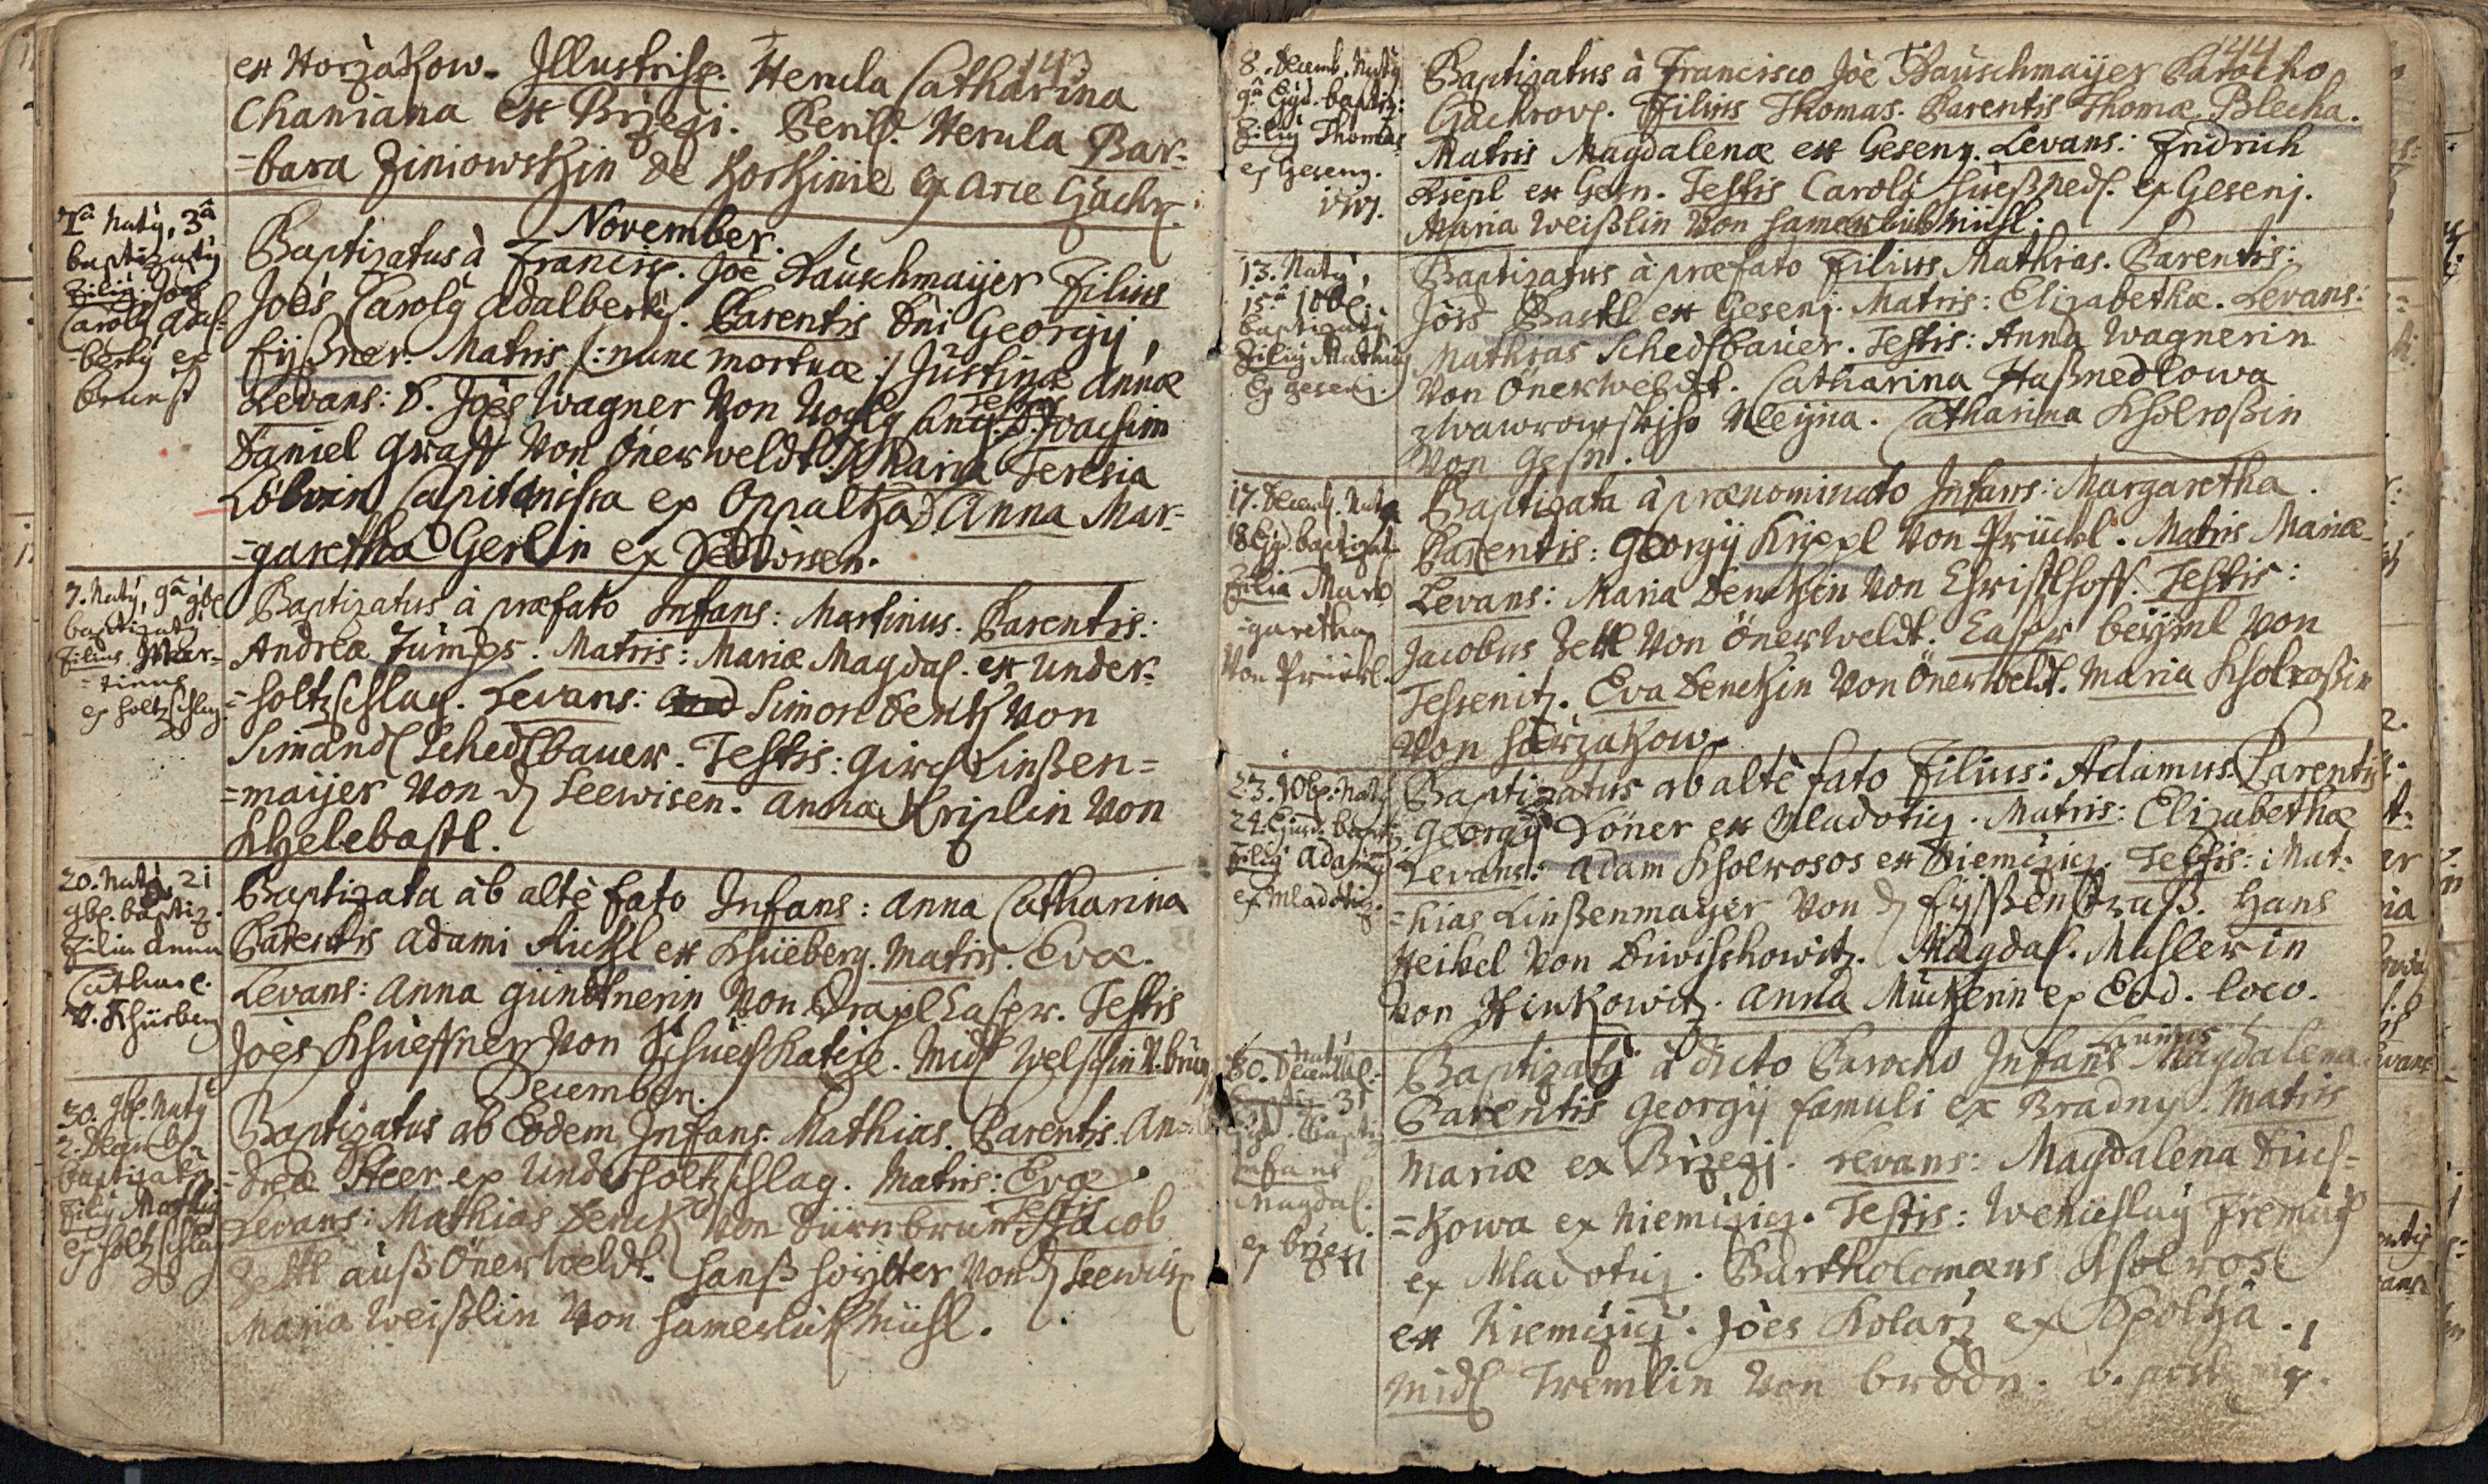 143
ex Horzakow. Illustriss. Herula Catharina
Chaniana ex Brzezi. Perill. Herula Bar-
-bara Ziniowskin de ex Arce
1ª Natg, 3ª
baptizatg
Filig Joes
Carolg Adal-
-bertg ex
Brunst
November.
Baptizatus à Francisc. Joe Rauschmaijer Filius
Joës Carolg Adalbertg. Parentis Dni Georgij
Eijßner. Matris /: nunc mortuæ :/ Justinæ Annæ
Levans: D. Joës Wagner Von Testes D. Joachim
Daniel Graff Von Önerweldt. Maria Teresia
Löbin Capitanissa ex Oppaltza. D. Anna Mar-
-garetha Gerlin ex
7. Natg, 9ª 9be
baptizatg
Filius Mar-
-tinus
ex Holtzschlag.
Baptizatus à præfato Infans: Martinus. Parentis:
Andreæ Zümps. Matris: Mariæ Magdal. ex Under-
-holtzschlag. Levans: Simon Denk Von
Simandl Schedlbauer. Testis: Girg Linßen-
-maijer Von d. Seewisen. Anna Kriplin Von
Khelebastl.
20. Natg, 21
9be. baptiz.
Filia Anna
Cathar.
V. Khüeberg
Baptizata ab altè fato Infans: Anna Catharina
Parentis Adami Aichl ex Khüeberg. Matris. Evæ.
Levans: Anna Günthnerin Von Drapl Caspr. Testis
Joës Khüeffner Von Midl Welschin V. brün
December.
30. 9be. Natg
2. Decemb.
baptizatg
Filig Mathig
ex Holtzschlag
Baptizatus ab Eodem Infans. Mathias. Parentis: An-
-dreæ Heer ex Underholtzschlag. Matris: Evæ.
Levans: Mathias Denck Von Dürnbrun. Testis Jacob
Zettl auß Önerweldt. Hanß Von d. Seewisen
Maria Weißlin Von Hamerlükhmühl.
144
8. Decemb. Natg
9ª Ejgd. baptiz:
Filig Thomas
ex Geseng.
Baptizatus à Francisco Joe Rauschmaijer Parocho
Gachrov. Filius Thomas. Parentis Thomæ Blecha.
Matris Magdalenæ ex Geseng. Levans: Fridrich
ex Gesn. Testis Carolg ex Gesenj.
Maria Weißlin Von Hamerlükhmühl.
13. Natg,
15ª 10be.
baptizatg
Filig Mathig
ex Gesenj.
Baptizatus à præfato Filius Mathias. Parentis:
Jörg Bastl ex Gesenj. Matris: Elizabethæ. Levans:
Mathias Schedlbauer. Testis: Anna Wagnerin
Von Önerweldt. Catharina Haßnedlowa
Mleijna. Catharina Kholroßin
Von Gesn.
17. Decemb. Nata
18 Ejgd baptizat
Filia Mar-
-garetha
Von Prückl.
Baptizata à prænominato Infans: Margaretha.
Parentis: Georgij Krippl Von Prückl. Matris Mariæ
Levans: Maria Denckin Von Christlhoff. Testis:
Jacobus Zettl Von Önerweldt. Caspr beijml Von
Tessenitz. Eva Denckin Von Önerweldt. Maria Kholroßin
Von Horzakow.
23. 10be. Natg
24. Ejusd. bapt.
Filig Adamg
ex Mladotig.
Baptizatus ab altè fato Filius: Adamus. Parentis
Georgij Löner ex Mladotig. Matris: Elizabethæ
Levans: Adam Kholrosos ex Niemczicz. Testis: Mat-
-hias Linßenmayer Von d. Eijßenstraß. Hans
Heibel Von Diwischowitz. Magdal. Mahlerin
Von Hinkowitz. Anna Mückerin ex Eod. loco.
Natg
30. Decembr.
31
Baptiz
Infans
Magdal.
ex brzezi
Baptizatg à dicto Parocho Infans Magdalena
Parentis Georgij famuli ex Bradny. Matris
Mariæ ex Brzezj. Levans: Magdalena Duch-
-kowa ex Niemczicz. Testis: Wencislag
ex Mladotig. Bartholomæus Kholrosl
ex Niemczicz. Joës Kolarz ex Opoltza.
Midl Tremlin Von brodn.